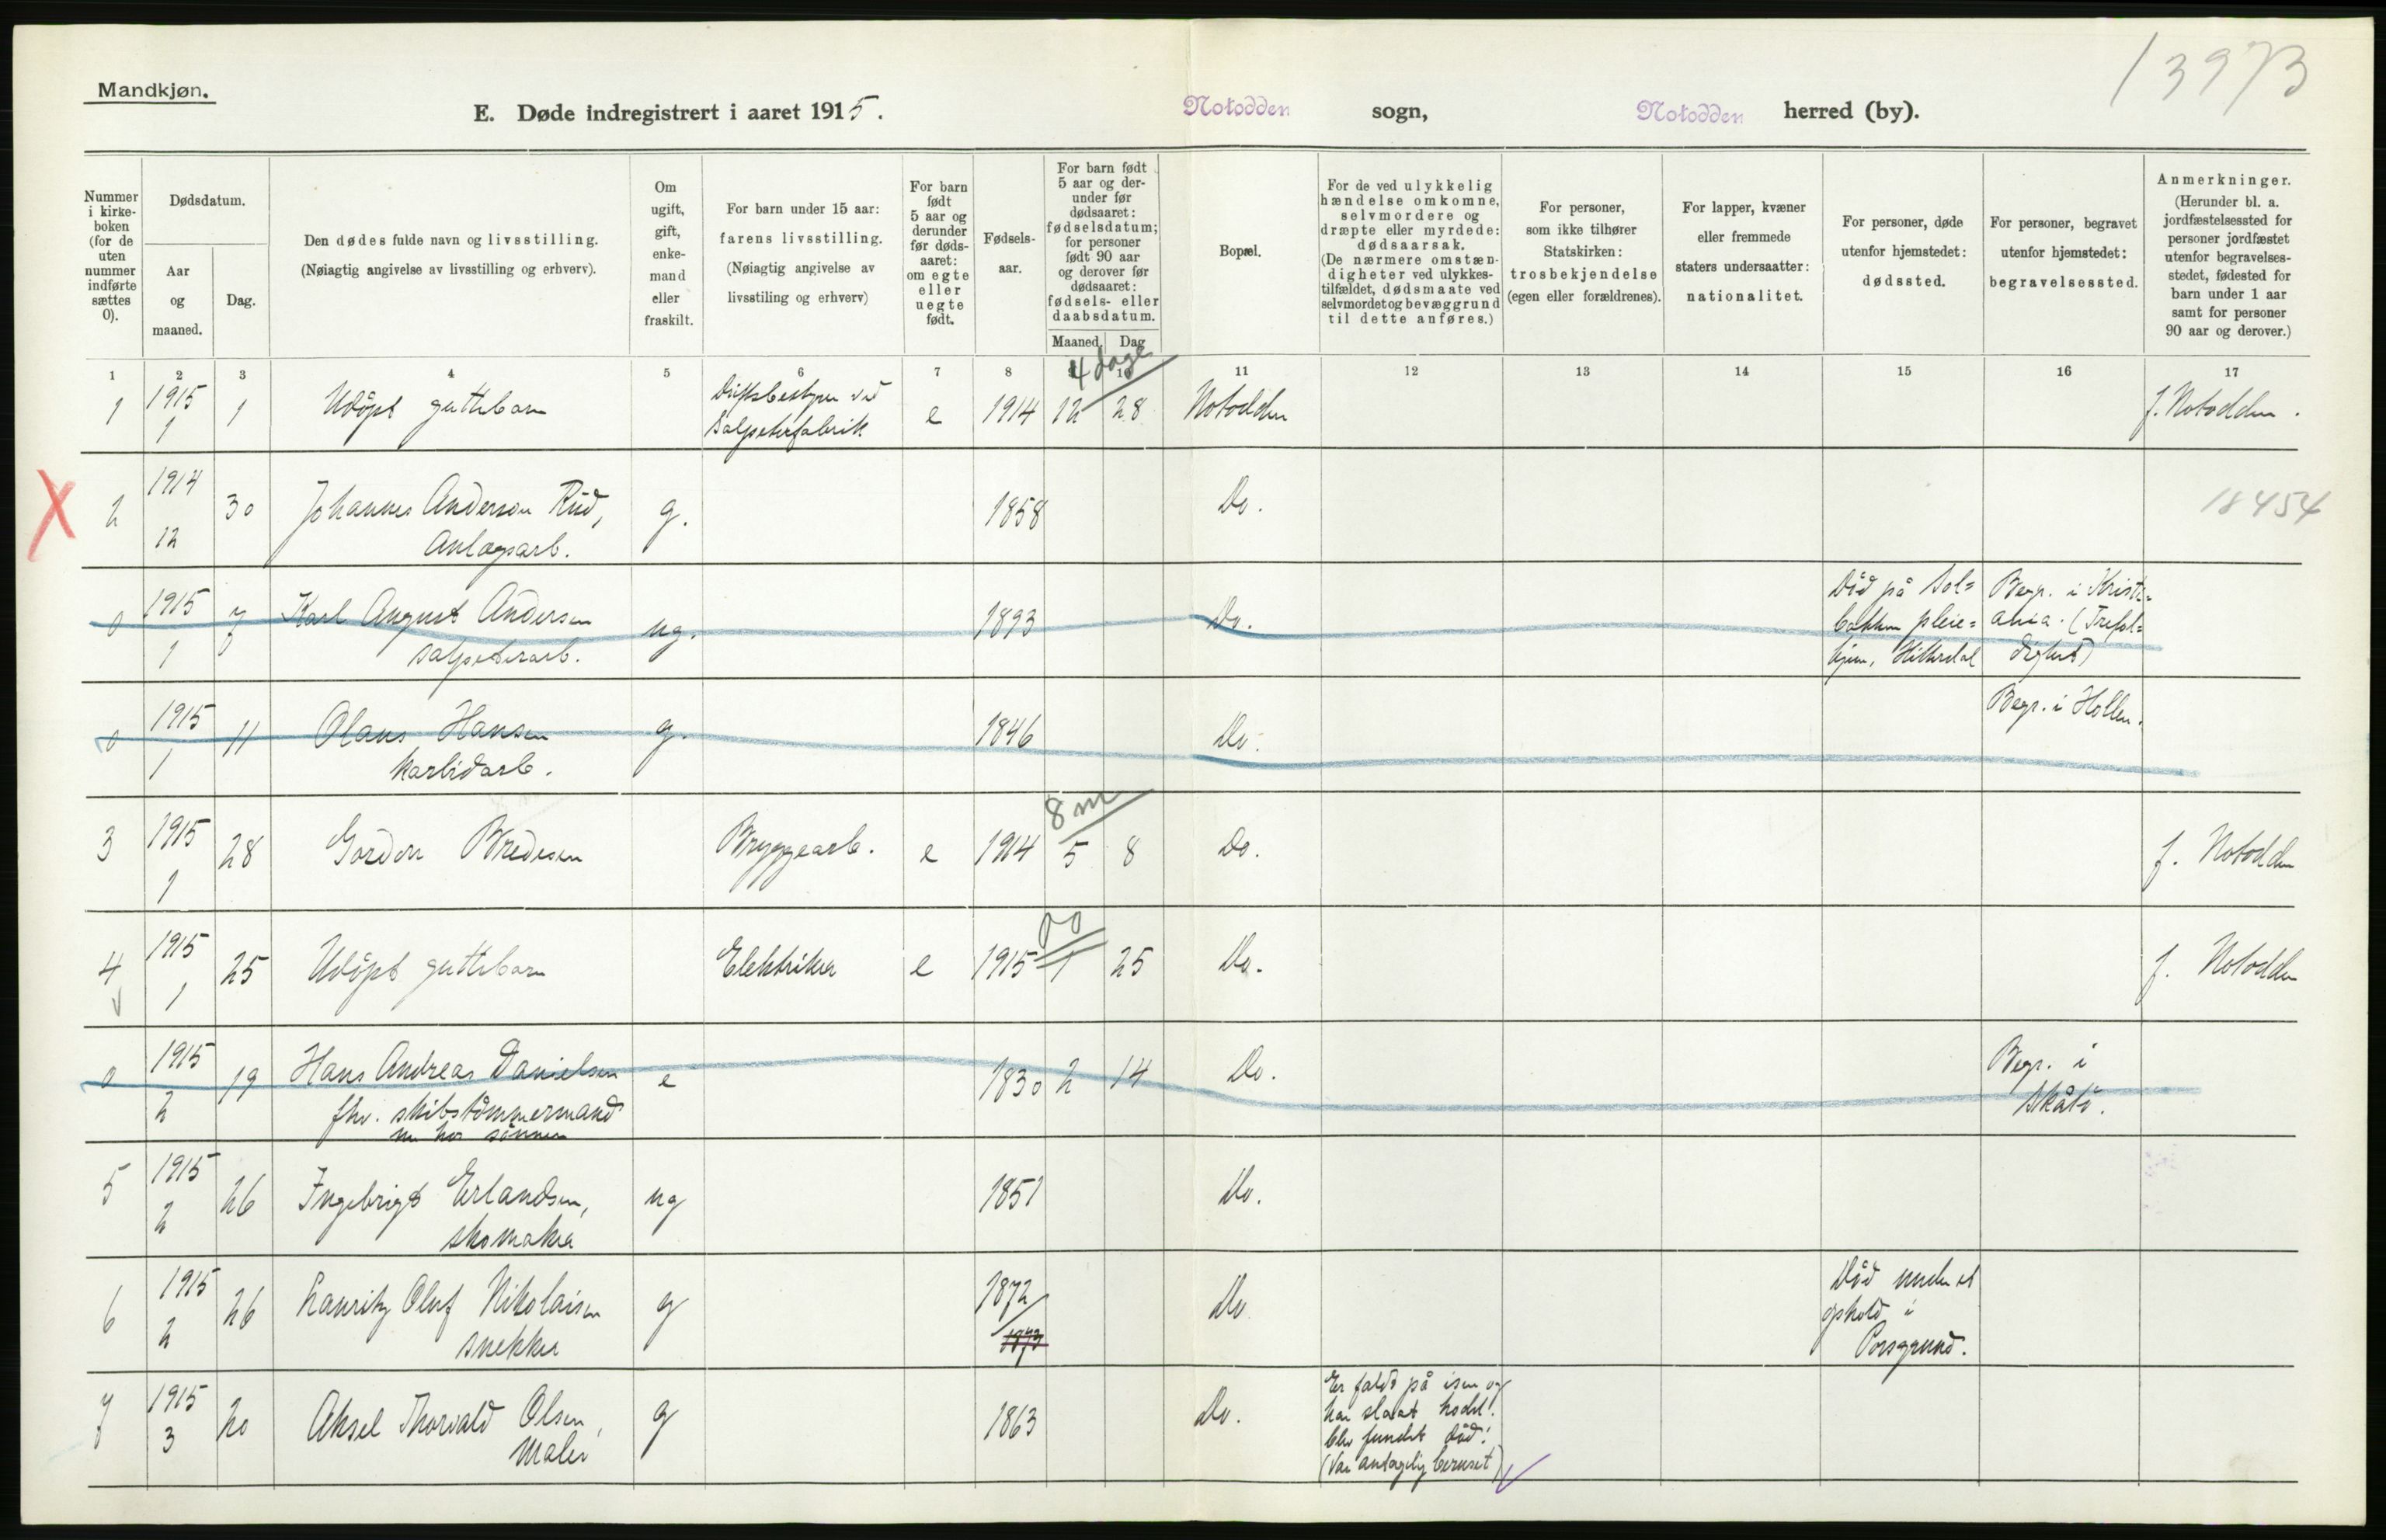 13973
Mandkjøn.
E. Døde indregistrert i aaret 1915.
Notodden sogn,
Notodden herred (by).
Nummer
i kirke-
boken
(for de
uten
nummer
indførte
sættes
0).
Dødsdatum.
Aar
og
maaned.
Dag.
Den dødes fulde navn og livsstilling.
(Nøiagtig angivelse av livsstilling og erhverv).
Om
ugift,
gift,
enke-
mand
eller
fraskilt.
For barn under 15 aar:
farens livsstilling.
(Nøiagtig angivelse av
livsstiling og erhverv)
For barn
født
5 aar og
derunder
før døds-
aaret:
om egte
eller
uegte
født.
Fødsels-
aar.
For barn født
5 aar og der-
under før
dødsaaret:
fødselsdatum;
for personer
født 90 aar
og derover før
dødsaaret:
fødsels- eller
daabsdatum.
Maaned. Dag
Bopæl.
For de ved ulykkelig
hændelse omkomne,
selvmordere og
dræpte eller myrdede:
dødsaarsak.
(De nærmere omstæn-
digheter ved ulykkes-
tilfældet, dødsmaate ved
selvmordet og bevæggrund
til dette anføres.)
For personer,
som ikke tilhører
Statskirken:
trosbekjendelse
(egen eller forældrenes).
For lapper, kvæner
eller fremmede
staters undersaatter:
nationalitet.
For personer, døde
utenfor hjemstedet:
dødssted.
For personer, begravet
utenfor hjemstedet:
begravelsessted.
Anmerkninger.
(Herunder bl. a.
jordfæstelsessted for
personer jordfæstet
utenfor begravelses-
stedet, fødested for
barn under 1 aar
samt for personer
90 aar og derover.)
1 2 3 4 5 6 7 8 9 10 11 12 13 14 15 16 17
4 dage
1 1915 1 1 Udöpt guttebarn Driftsbestyrer ved
Salpeterfabrik e 1914 12 28 Notodden f. Notodden.
X 2 1914 12 30 Johannes Anderson Rud,
Anlægsarb. g. 1858 Do. 18454
0 1915 1 7 Karl August Andersen
Salpeterarb. ug. 1893 Do. Död på Sol=
bakken pleie=
hjem, Hitterdal Begr. i Kristi=
ania. (Trefol=
dighet)
0 1915 1 11 Olaus Hansen
karbidarb. g. 1846 Do. Begr. i Hollen.
8 m
3 1915 1 28 Gordon Bredesen Bryggearb. e 1914 5 8 Do. f. Notodden
00
4 1915 1 25 Udöpt guttebarn Elektriker e 1915 1 25 Do. f. Notodden
0 1915 2 19 Hans Andreas Danielsen
fhv. skibstömmermand
nu hos sönnen e 1830 2 14 Do. Begr. i
Skåtö.
5 1915 2 26 Ingebrigt Erlandsen,
skomaker ug 1851 Do.
6 1915 2 26 Lauritz Oluf Nikolaisen
snekker g 1872
1873 Do Död under et
ophold i
Porsgrund.
7 1915 3 20 Aksel Thorvald Olsen,
Maler g 1863 Do. Er faldt på isen og
har slaat hodet.
blev fundet död!
(Var antagelig beruset)